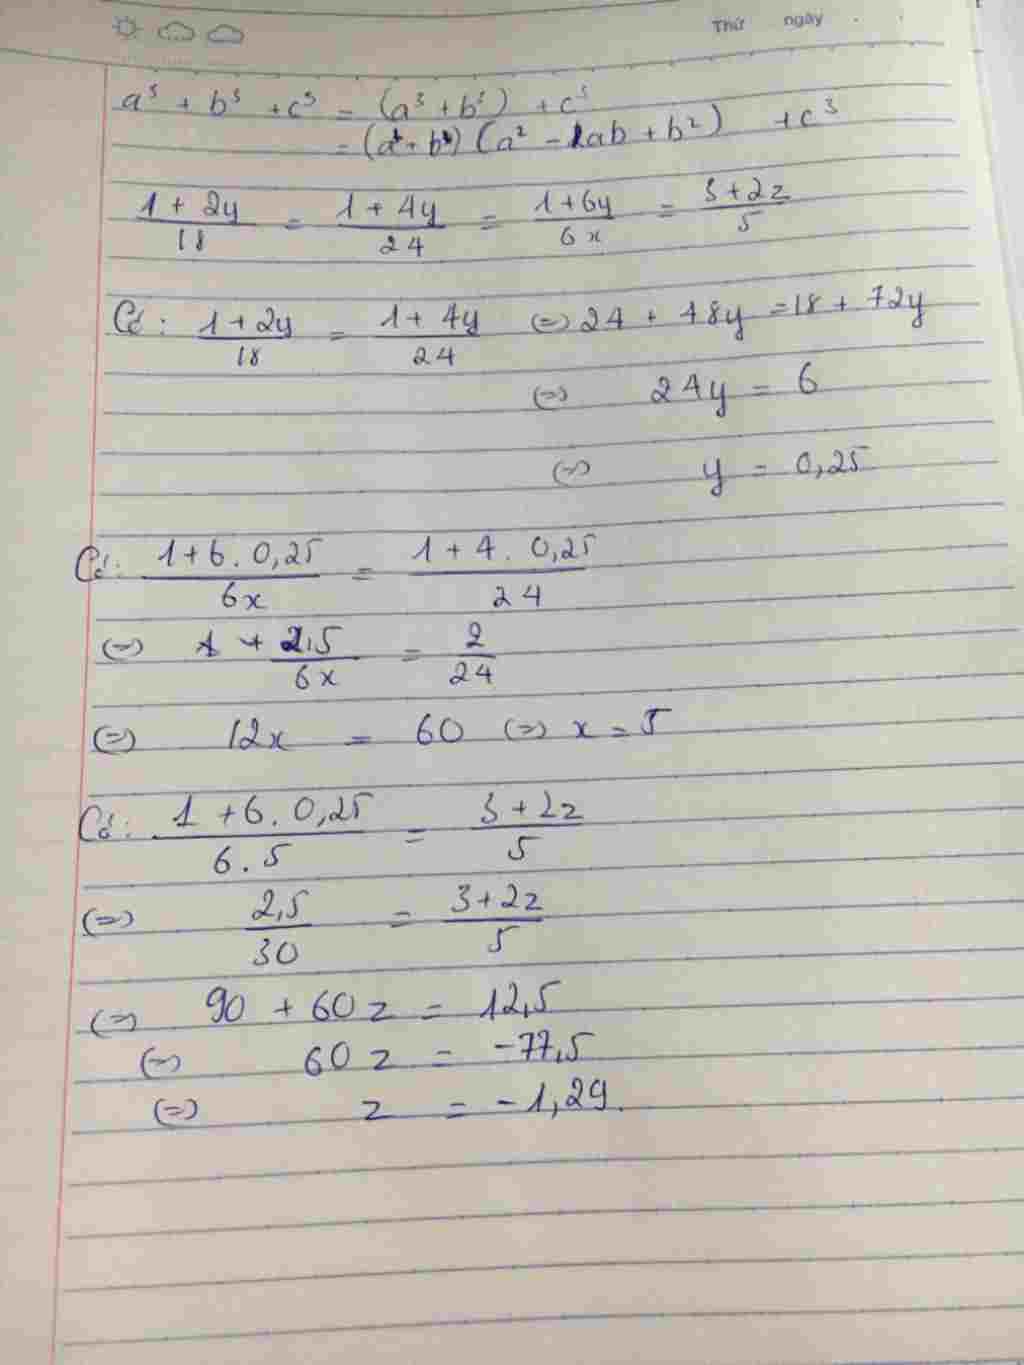 Thứ ngày
a³ + b³ + c³ = (a³ + b³) + c³
= (a + b) (a² - ab + b²) + c³
(1 + 2y)/18 = (1 + 4y)/24 = (1 + 6y)/6x = (3 + 2z)/5
Có: (1 + 2y)/18 = (1 + 4y)/24 (=) 24 + 48y = 18 + 72y
(=) 24y = 6
(=) y = 0,25
Có: (1 + 6 . 0,25)/6x = (1 + 4 . 0,25)/24
(=) 2,5/6x = 2/24
(=) 12x = 60 (=) x = 5
Có: (1 + 6 . 0,25)/(6 . 5) = (3 + 2z)/5
(=) 2,5/30 = (3 + 2z)/5
(=) 90 + 60z = 12,5
(=) 60z = -77,5
(=) z = -1,29.